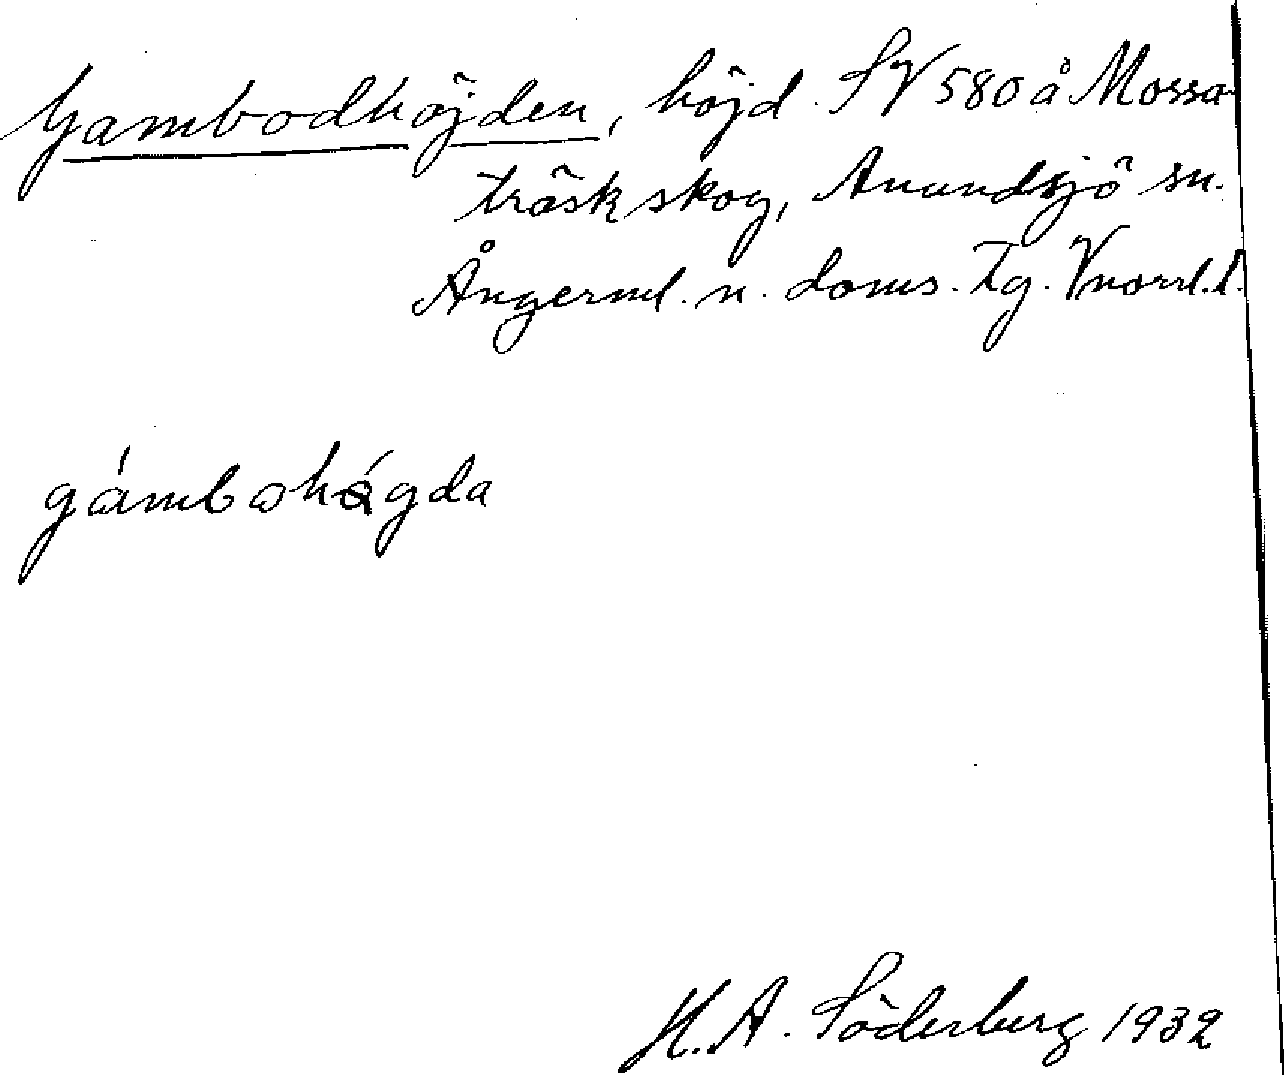 Gambodhöjden, höjd. SV 580 å Mossa-
träsk skog, Anundsjö sn.
Ångerml. n. doms. Tg. Vnorrl. l.
H. A. Söderberg 1932